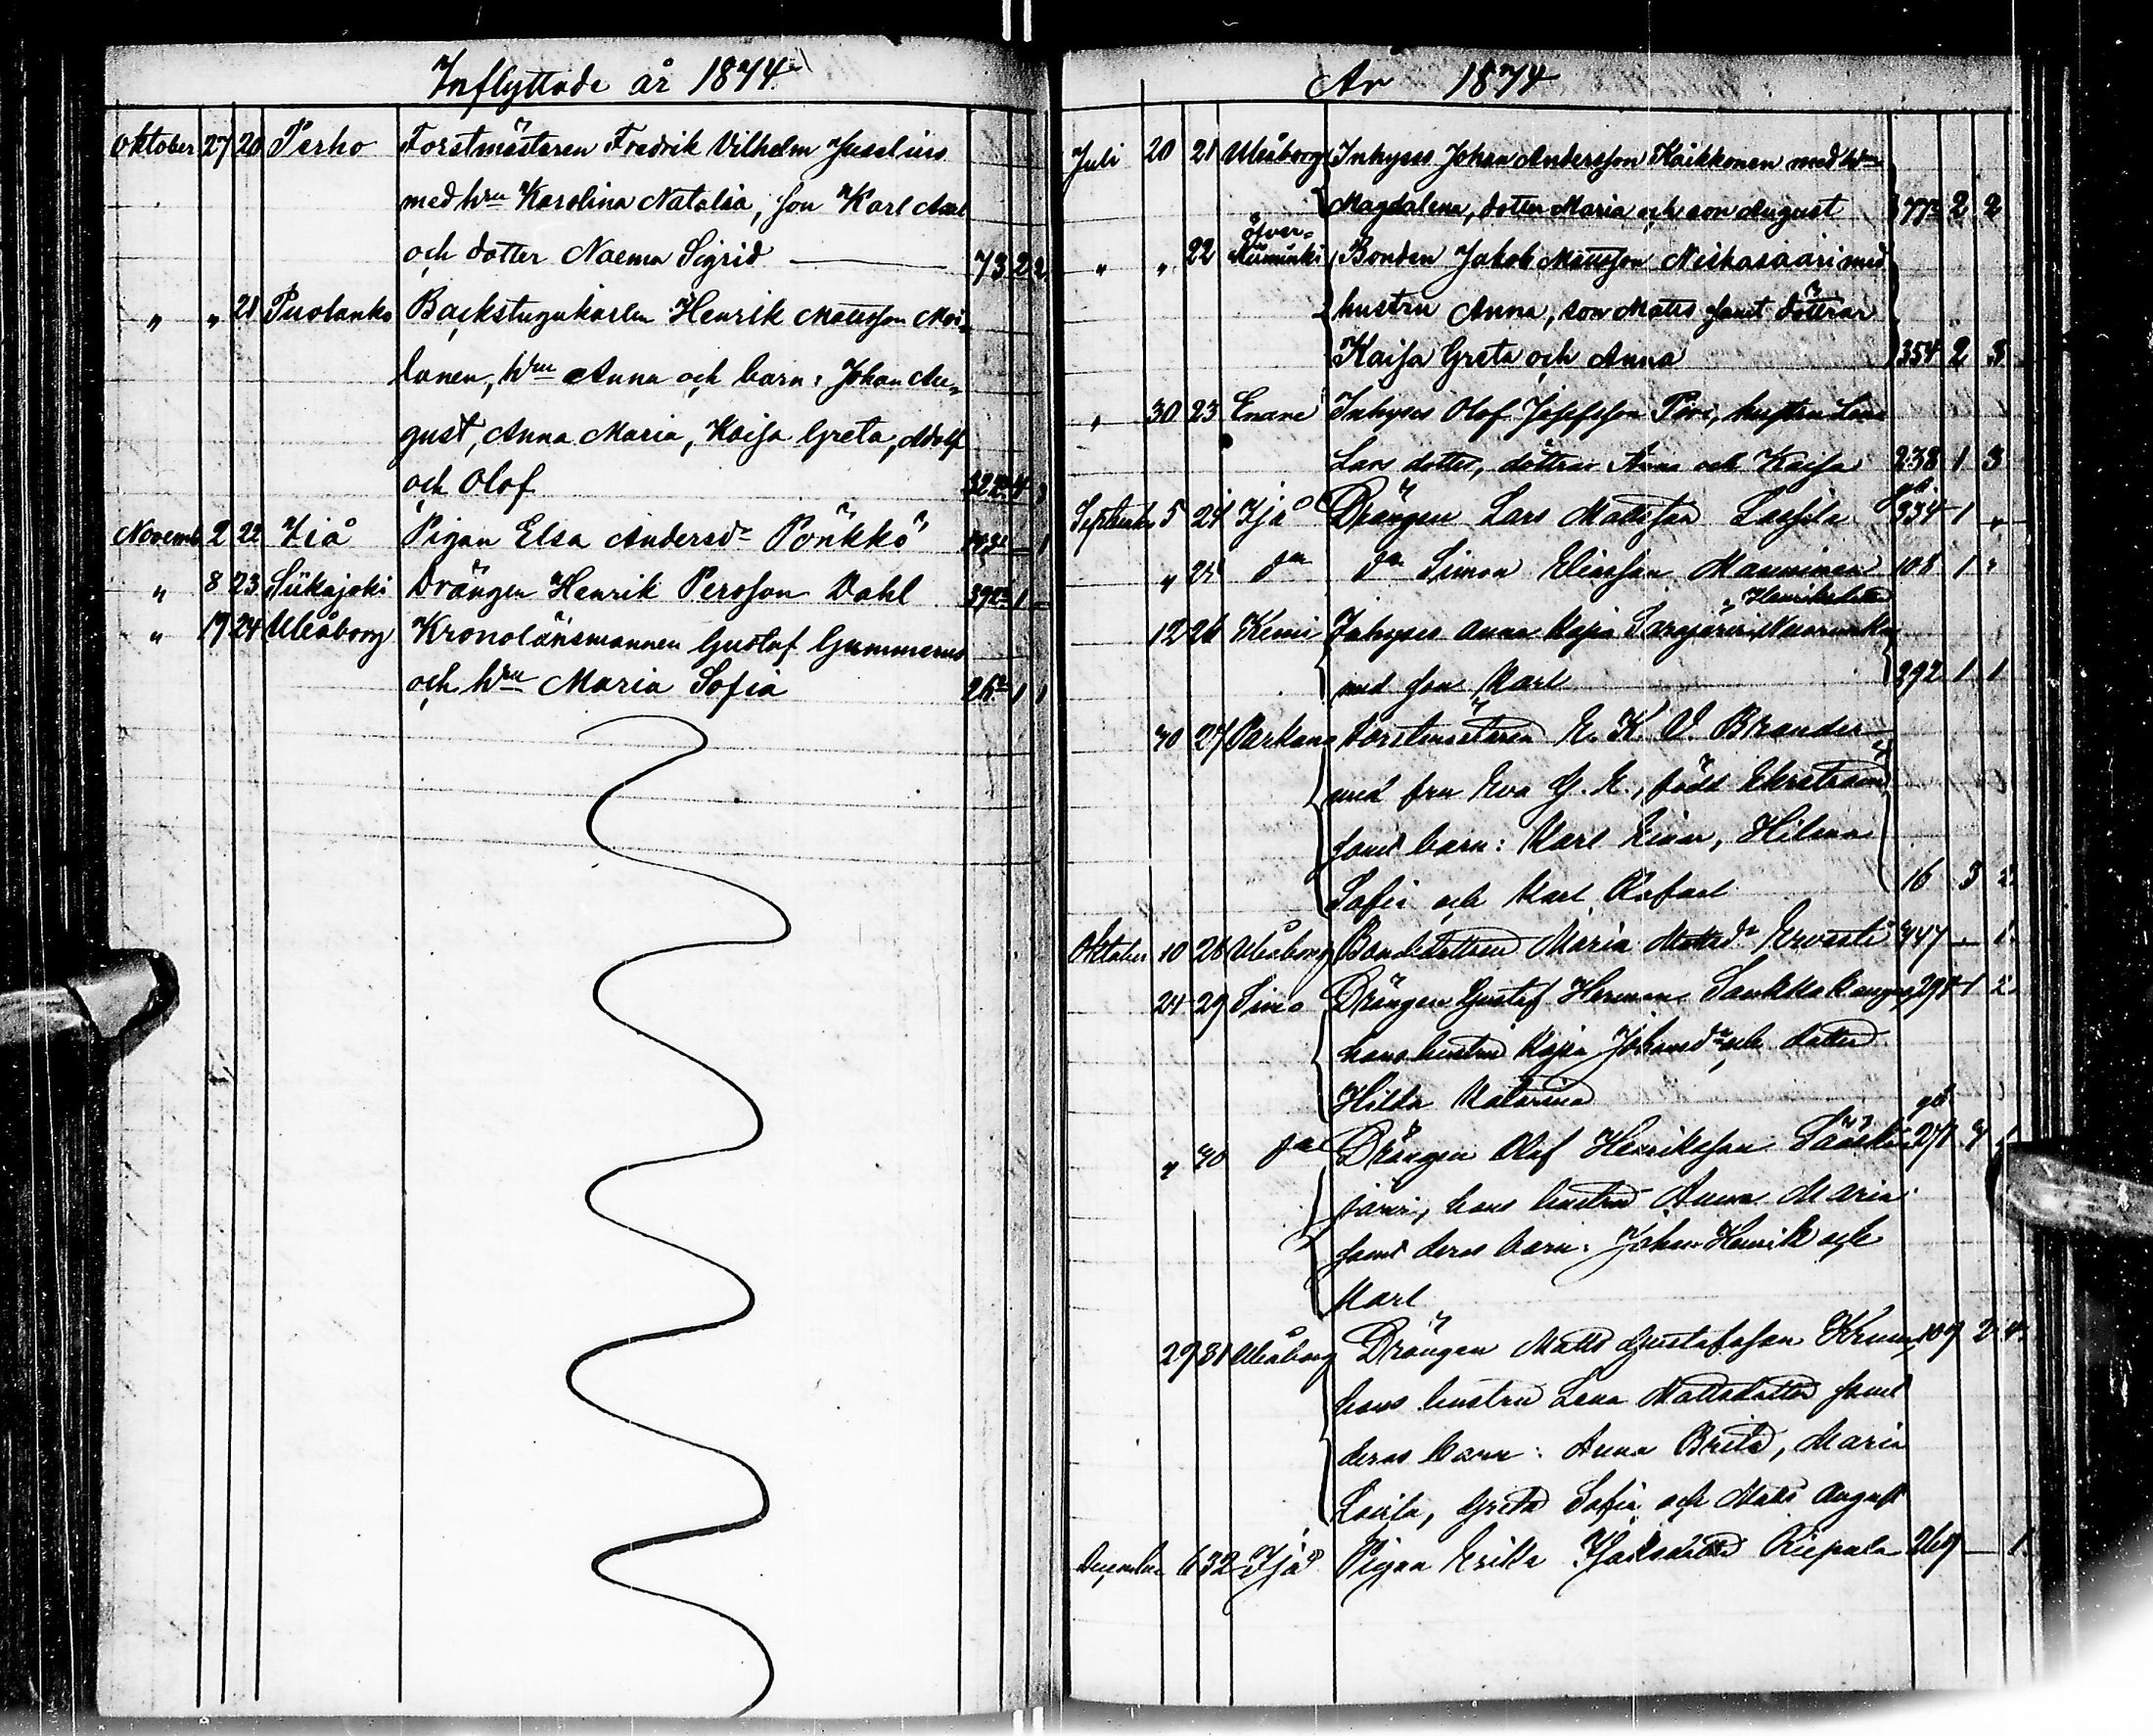 Inflyttade år 1874.
Oktober 27 20 Perho Forstmästaren Fredrik Vilhelm Juselius
med hru Karolina Natalia, son Karl Axel
och dotter Naema Sigrid 73 2 2
„ „ 21 Puolanko Backstugukarlen Henrik Mattsson Moi-
lanen, hru Anna och barn: Johan Au-
gust, Anna Maria, Kaisa Greta, Adolf
och Olof 4 3
Novemb. 2 22 Ijå Pigan Elsa Andersdr Pönkkö — 1
„ 8 23 Siikajoki Drängen Henrik Persson Dahl 1 —
„ 19 24 Uleåborg Kronolänsmannen Gustaf Gummerus
och hru Maria Sofia 26 1 1
År 1874
Juli 20 21 Uleåborg Inhyses Johan Andersson Kaikkonen med hru
Magdalena, dotter Maria och son August 77 2 2
„ „ 22 Öfver-Kiiminki Bonden Jakob Mattsson Niskasaari med
hustru Anna, son Matts samt döttrar
Kaisa Greta och Anna 354 2 3
„ 30 23 Enare Inhyses Olof Josefsson hustru Lena
Lars dotter, döttrar Anna och Kaisa 238 1 3
September 5 24 Ijå Drängen Lars Mattsson Lassila 334 1 „
„ 25 do do Simon Eliasson Manninen 108 1 „
Henriksdotter
12 26 Kemi Inhyses Anna Kajsa
med son Karl 392 1 1
30 27 Parkano Forstmästaren E. K. V. Brander
med fru Eva G. E., född Ekestrand
samt barn: Karl Einar, Hilma
Sofia och Karl Rafael 16 3 2
Oktober 10 28 Uleåborg Bondedottren Maria Mattsdr Ervasti 447 — 1
24 29 Simo Drängen Gustaf Herman Sankkakangas, 298 1 2
hans hustru Kajsa Johansdr och dotter
Hilda Katarina
„ 30 do Drängen Olof Henriksson
järvi, hans hustru Anna Maria
samt deras barn: Johan Henrik och
Karl
29 31 Uleåborg Drängen Matts Gustafsson 109 2 4
hans hustru Lena Mattsdotter samt
deras barn: Anna Brita, Maria
Lovisa, Greta Sofia och Matts August
December 6 32 Ijå Pigan Erika Isaksdotter Riepula 269 — 1